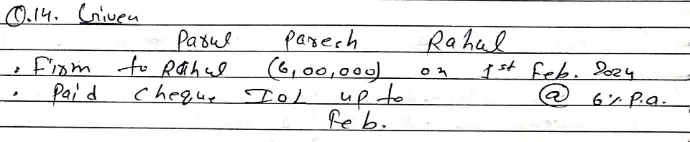 Q.14. Given
Parul Paresh Rahul
• Firm to Rahul (6,00,000) on 1st Feb. 2024
• Paid Cheque IOL up to @ 6% P.a.
Feb.